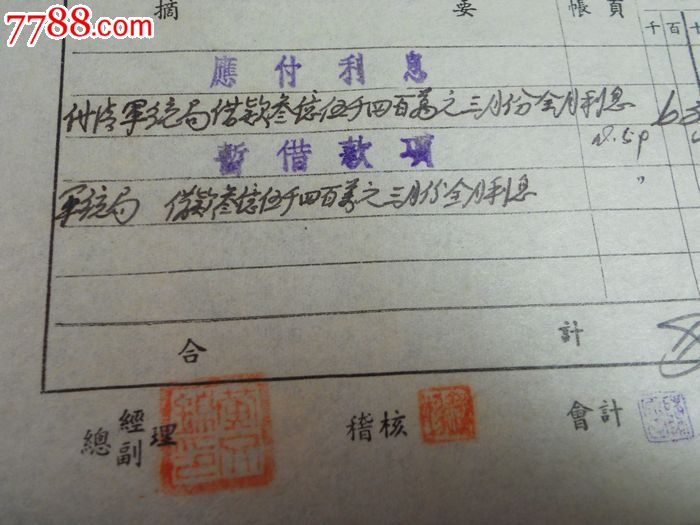 7788.com
摘 要 帳頁 千百十
應付利息
付冷軍統局借款叁億伍仟四百萬元三月份全月利息
@.5p
暫借款項
軍統局 借款叁億伍仟四百萬元三月份全月利息 〃
合 計
總經副理 稽核 會計